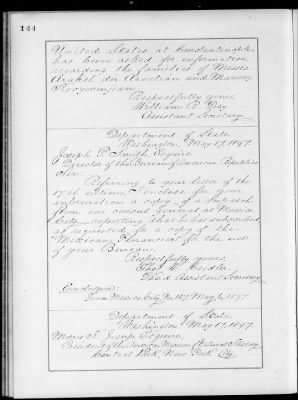 144
United States at Constantinople
has been asked for information
regarding the families of Messrs
Arakel der Avootian and Manoog
Respectfully yours,
William R. Day
Assistant Secretary.
Department of State,
Washington, May 17, 1897.
Joseph P. Smith, Esquire,
Director of the Bureau of American Republics
Sir:
Referring to your letter of the
17th ultimo, I enclose for your
information a copy of a despatch
from our Consul General at Mexico
City, reporting that he has subscribed
as requested for a copy of the
Mexican Financier for the use
of your Bureau.
Respectfully yours,
Thos. W. Cridler,
Third Assistant Secretary.
Enclosure:
From Mexico City, No. 107, May 6, 1897.
Department of State,
Washington, May 17, 1897.
Morris K. Jesup, Esquire,
President of the American Museum of Natural History,
Central Park, New York City.